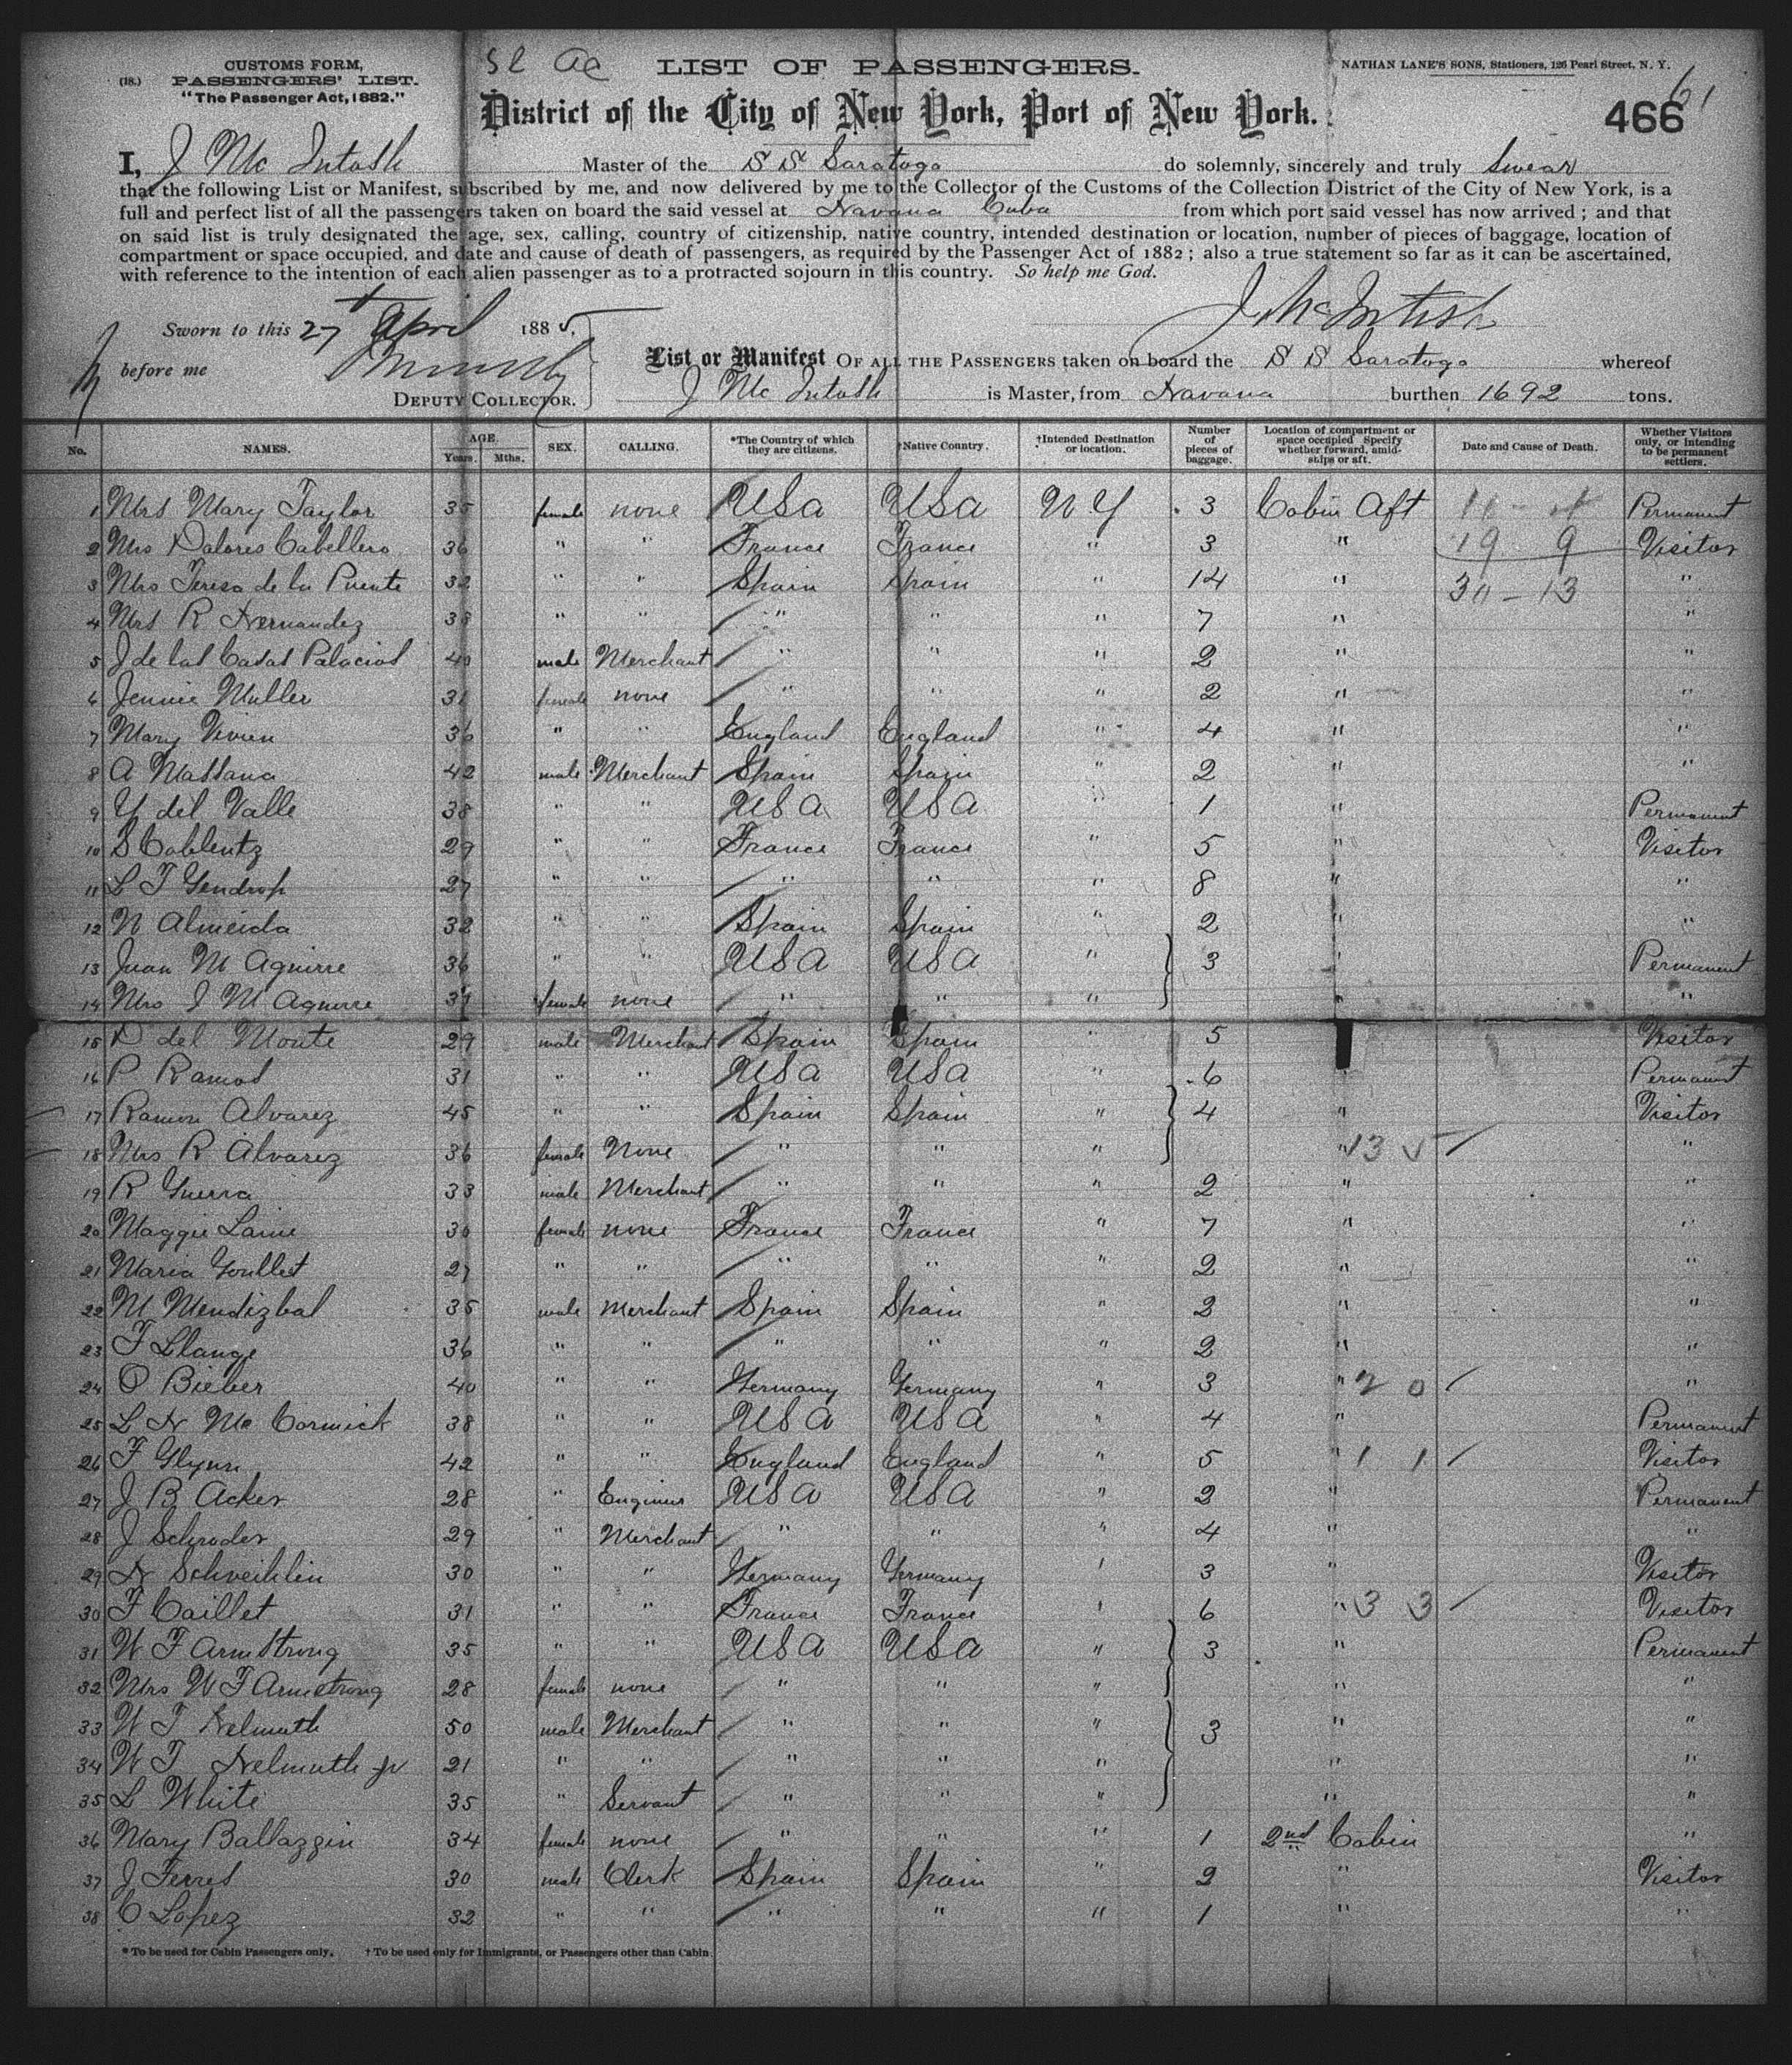 CUSTOMS FORM,
(18.) PASSENGERS' LIST.
"The Passenger Act, 1882."
LIST OF PASSENGERS.
NATHAN LANE'S SONS, Stationers, 126 Pearl Street, N. Y.
61
District of the City of New York, Port of New York.
466
I, J Mc Intosh Master of the S S Saratoga do solemnly, sincerely and truly swear
that the following List or Manifest, subscribed by me, and now delivered by me to the Collector of the Customs of the Collection District of the City of New York, is a
full and perfect list of all the passengers taken on board the said vessel at Havana Cuba from which port said vessel has now arrived ; and that
on said list is truly designated the age, sex, calling, country of citizenship, native country, intended destination or location, number of pieces of baggage, location of
compartment or space occupied, and date and cause of death of passengers, as required by the Passenger Act of 1882 ; also a true statement so far as it can be ascertained,
with reference to the intention of each alien passenger as to a protracted sojourn in this country. So help me God.
J. McIntosh
Sworn to this 27 April 1885.
before me
DEPUTY COLLECTOR.
List or Manifest OF ALL THE PASSENGERS taken on board the S S Saratoga whereof
J Mc Intosh is Master, from Havana burthen 1692 tons.
No. NAMES. AGE. Years. Mths. SEX. CALLING. *The Country of which they are citizens. †Native Country. †Intended Destination or location. Number of pieces of baggage. Location of compartment or space occupied Specify whether forward, amidships or aft. Date and Cause of Death. Whether Visitors only, or intending to be permanent settlers.
1 Mrs Mary Taylor 35 female none USa USa N Y 3 Cabin Aft 11 - 4 Permanent
2 Mrs Dalores Cabellero 36 " " France France " 3 " 19 9 Visitor
3 Mrs Teresa de la Puente 32 " " Spain Spain " 14 " 30 - 13 "
4 Mrs R Hernandez 38 " " " " " 7 " "
5 J de las Casas Palacios 40 male Merchant " " " 2 " "
6 Jennie Muller 31 female none " " " 2 " "
7 Mary Vivien 36 " " England England " 4 " "
8 A Massana 42 male Merchant Spain Spain " 2 " "
9 Y del Valle 38 " " USA USA " 1 " Permanent
10 S Coblentz 29 " " France France " 5 " Visitor
11 L T Gendrop 27 " " " " " 8 " "
12 N Almeida 32 " " Spain Spain " 2 " "
13 Juan M Aguirre 36 " " USA USA " 3 " Permanent
14 Mrs J M Aguirre 31 female none " " " " "
15 D del Monte 29 male Merchant Spain Spain " 5 Visitor
16 P Ramos 31 " " USA USA " 6 " Permanent
17 Ramon Alvarez 45 " " Spain Spain " 4 " Visitor
18 Mrs R Alvarez 36 female None " " " " 13 5 "
19 R Guerra 33 male Merchant " " " 2 " "
20 Maggie Laine 30 female none France France " 7 " "
21 Maria Goullet 27 " " " " " 2 " "
22 M Mendizbal 35 male Merchant Spain Spain " 2 " "
23 F Llange 36 " " " " " 2 " "
24 O Bieber 40 " " Germany Germany " 3 " 2 0 "
25 L H Mc Cormick 38 " " USA USA " 4 " Permanent
26 F Glynn 42 " " England England " 5 " 1 1 Visitor
27 J B Acker 28 " Engineer USA USA " 2 " Permanent
28 J Schroder 29 " Merchant " " " 4 " "
29 H Schveihlin 30 " " Germany Germany " 3 " Visitor
30 F Caillet 31 " " France France " 6 " 3 3 Visitor
31 W F Armstrong 35 " " USA USA " 3 " Permanent
32 Mrs W F Armstrong 28 female none " " " " "
33 W T Helmuth 50 male Merchant " " " 3 " "
34 W T Helmuth Jr 21 " " " " " " "
35 L White 35 " Servant " " " " "
36 Mary Ballazzin 34 female none " " " 1 2nd Cabin "
37 J Ferres 30 male Clerk Spain Spain " 2 " Visitor
38 C Lopez 32 " " " " " 1 " "
* To be used for Cabin Passengers only. † To be used only for Immigrants, or Passengers other than Cabin.